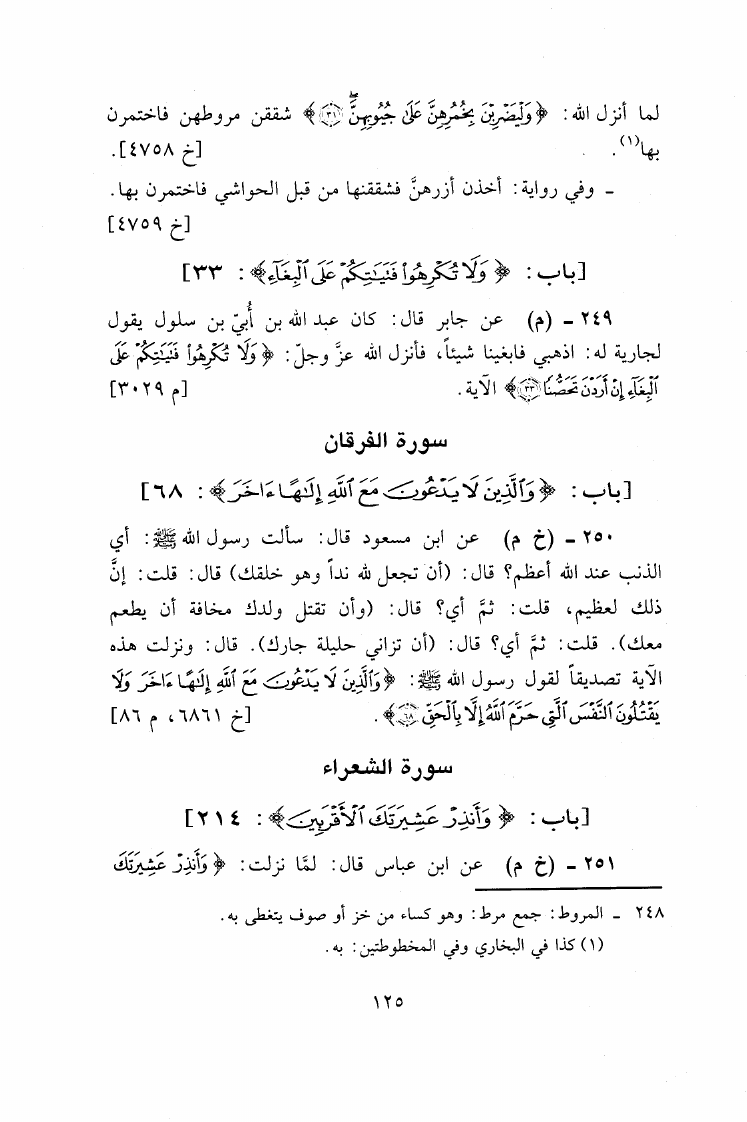 لما أنزل الله: ﴿وَلْيَضْرِبْنَ بِخُمُرِهِنَّ عَلَىٰ جُيُوبِهِنَّ ۖ ﴿٣١﴾﴾ شققن مروطهن فاختمرن
بها(١). [خ ٤٧٥٨].
ـ وفي رواية: أخذن أزرهنَّ فشققنها من قبل الحواشي فاختمرن بها.
[خ ٤٧٥٩]
[باب: ﴿وَلَا تُكْرِهُوا۟ فَتَيَـٰتِكُمْ عَلَى ٱلْبِغَآءِ﴾: ٣٣]
٢٤٩ ـ (م) عن جابر قال: كان عبد الله بن أُبيّ بن سلول يقول
لجارية له: اذهبي فابغينا شيئاً، فأنزل الله عزَّ وجلّ: ﴿وَلَا تُكْرِهُوا۟ فَتَيَـٰتِكُمْ عَلَى
ٱلْبِغَآءِ إِنْ أَرَدْنَ تَحَصُّنًا ﴿٣٣﴾﴾ الآية. [م ٣٠٢٩]
سورة الفرقان
[باب: ﴿وَٱلَّذِينَ لَا يَدْعُونَ مَعَ ٱللَّهِ إِلَـٰهًا ءَاخَرَ﴾: ٦٨]
٢٥٠ ـ (خ م) عن ابن مسعود قال: سألت رسول الله ﷺ: أي
الذنب عند الله أعظم؟ قال: (أن تجعل لله نداً وهو خلقك) قال: قلت: إنَّ
ذلك لعظيم، قلت: ثمَّ أي؟ قال: (وأن تقتل ولدك مخافة أن يطعم
معك). قلت: ثمَّ أي؟ قال: (أن تزاني حليلة جارك). قال: ونزلت هذه
الآية تصديقاً لقول رسول الله ﷺ: ﴿وَٱلَّذِينَ لَا يَدْعُونَ مَعَ ٱللَّهِ إِلَـٰهًا ءَاخَرَ وَلَا
يَقْتُلُونَ ٱلنَّفْسَ ٱلَّتِى حَرَّمَ ٱللَّهُ إِلَّا بِٱلْحَقِّ ﴿٦٨﴾﴾. [خ ٦٨٦١، م ٨٦]
سورة الشعراء
[باب: ﴿وَأَنذِرْ عَشِيرَتَكَ ٱلْأَقْرَبِينَ﴾: ٢١٤]
٢٥١ ـ (خ م) عن ابن عباس قال: لمَّا نزلت: ﴿وَأَنذِرْ عَشِيرَتَكَ
٢٤٨ ـ المروط: جمع مرط: وهو كساء من خز أو صوف يتغطى به.
(١) كذا في البخاري وفي المخطوطتين: به.
١٢٥